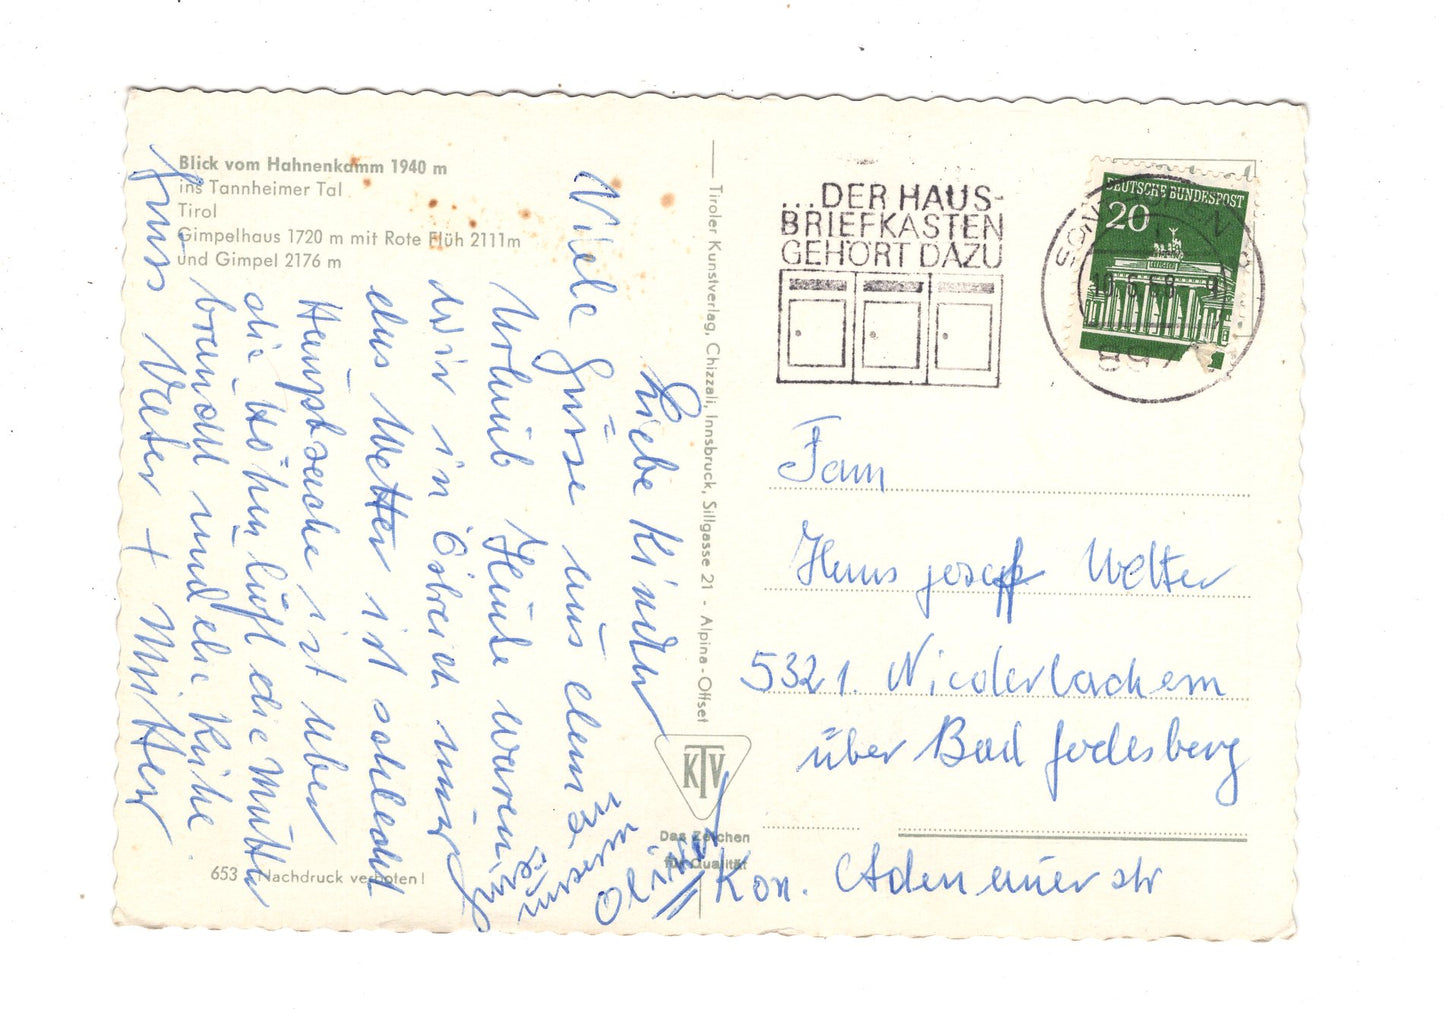 Blick vom Hahnenkamm 1940 m
ins Tannheimer Tal
Tirol
Gimpelhaus 1720 m mit Rote Flüh 2111m
und Gimpel 2176 m
Liebe Kinder
Viele Grüse aus dem
Urlaub Heute waren
wir in Östreich nur
das Wetter ist schlecht
Hauptsache ist aber
die Höhenluft die Mutter
braucht und die Ruhe
Gruss Vater + Mutter
653 Nachdruck verboten!
Tiroler Kunstverlag, Chizzali, Innsbruck, Sillgasse 21 - Alpina-Offset
KTV
Das Zeichen
für Qualität
...DER HAUS-
BRIEFKASTEN
GEHÖRT DAZU
DEUTSCHE BUNDESPOST
20
Fam
Hans Josef Welter
5321. Niederbachem
über Bad Godesberg
Kon. Adenauer str